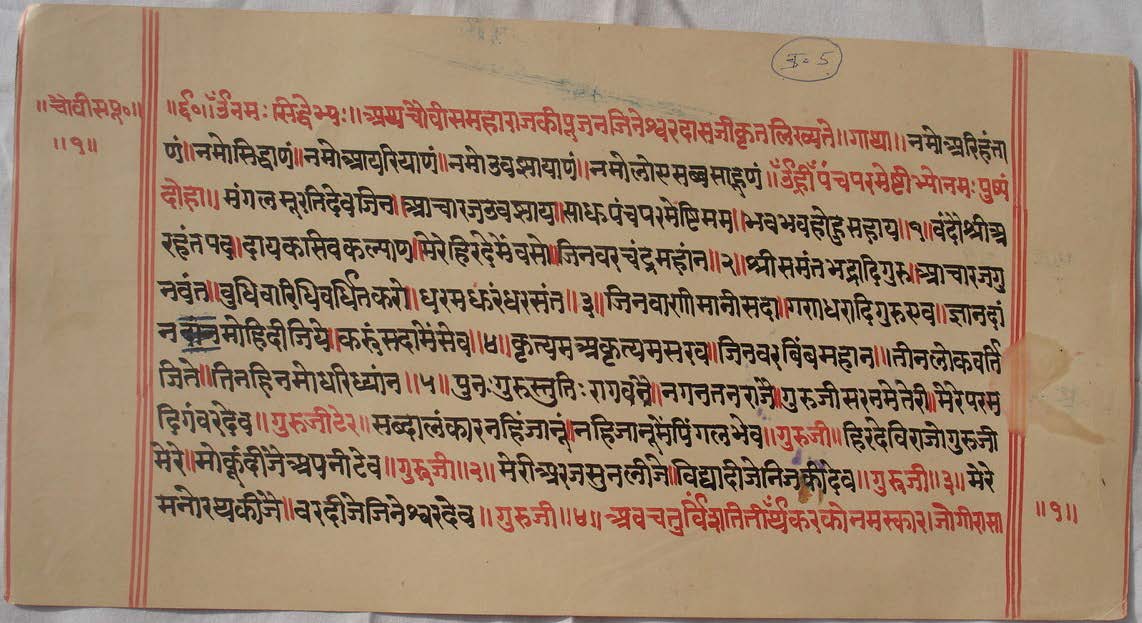 ५
॥चौवीसपू०॥
॥१॥
॥ई०॥ॐनमः सिद्धेभ्यः॥अथचौवीसमहाराजकीपूजनजिनेश्वरदासजीकृतलिख्यते॥गाथा॥नमोअरिहंता
णं॥नमोसिद्धाणं॥नमोआयरियाणं॥नमोउवझायाणं॥नमोलोएसब्बसाहूणं॥ॐह्रींपंचपरमेष्टीभ्योनमःपुष्पं
दोहा॥मंगलमूरतिदेवजिन।आचारजउवझाय॥साधपंचपरमेष्टिमम॥भवभवहोहुसहाय॥१॥वंदौश्रीअ
रहंतपद॥दायकसिवकल्याण॥मेरेहिरदेमेंवसो॥जिनवरचंद्रमहांन॥२॥श्रीसमंतभद्रादिगुरु॥आचारजगु
नवंत॥बुधिवारिधिवर्धितकरो॥धरमधरंधरसंत॥३॥जिनवाणीमानीसदा॥गणधरादिगुरुएव॥ज्ञानदां
नमोहिदीजिये॥करुंसदामेंसेव॥४॥कृत्यमअकृत्यमसरव॥जिनवरबिंबमहान॥तीनलोकवर्ति
जिते॥तिनहिनमोधरिध्यांन॥५॥पुनःगुरुस्तुतिःरागवर्वते॥नगनतनराजै॥गुरुजीसरनमेतेरी॥मेरेपरम
दिगंवरदेव॥गुरुजीटेर॥सब्दालंकारनहिंजानूं॥नहिजानूमेंपिंगलभेव॥गुरुजी॥हिरदेविराजोगुरुजी
मेरे॥मोकूंदीजेअपनीटेव॥गुरुजी॥२॥मेरीअरजसुनलीजे॥विद्यादीजेनिजकीदेव॥गुरुजी॥३॥मेरे
मनोरथकीजै॥वरदीजेजिनेश्वरदेव॥गुरुजी॥४॥अवचतुर्विंशतितीर्थंकरकोनमस्कार।जोगीरासा
॥१॥